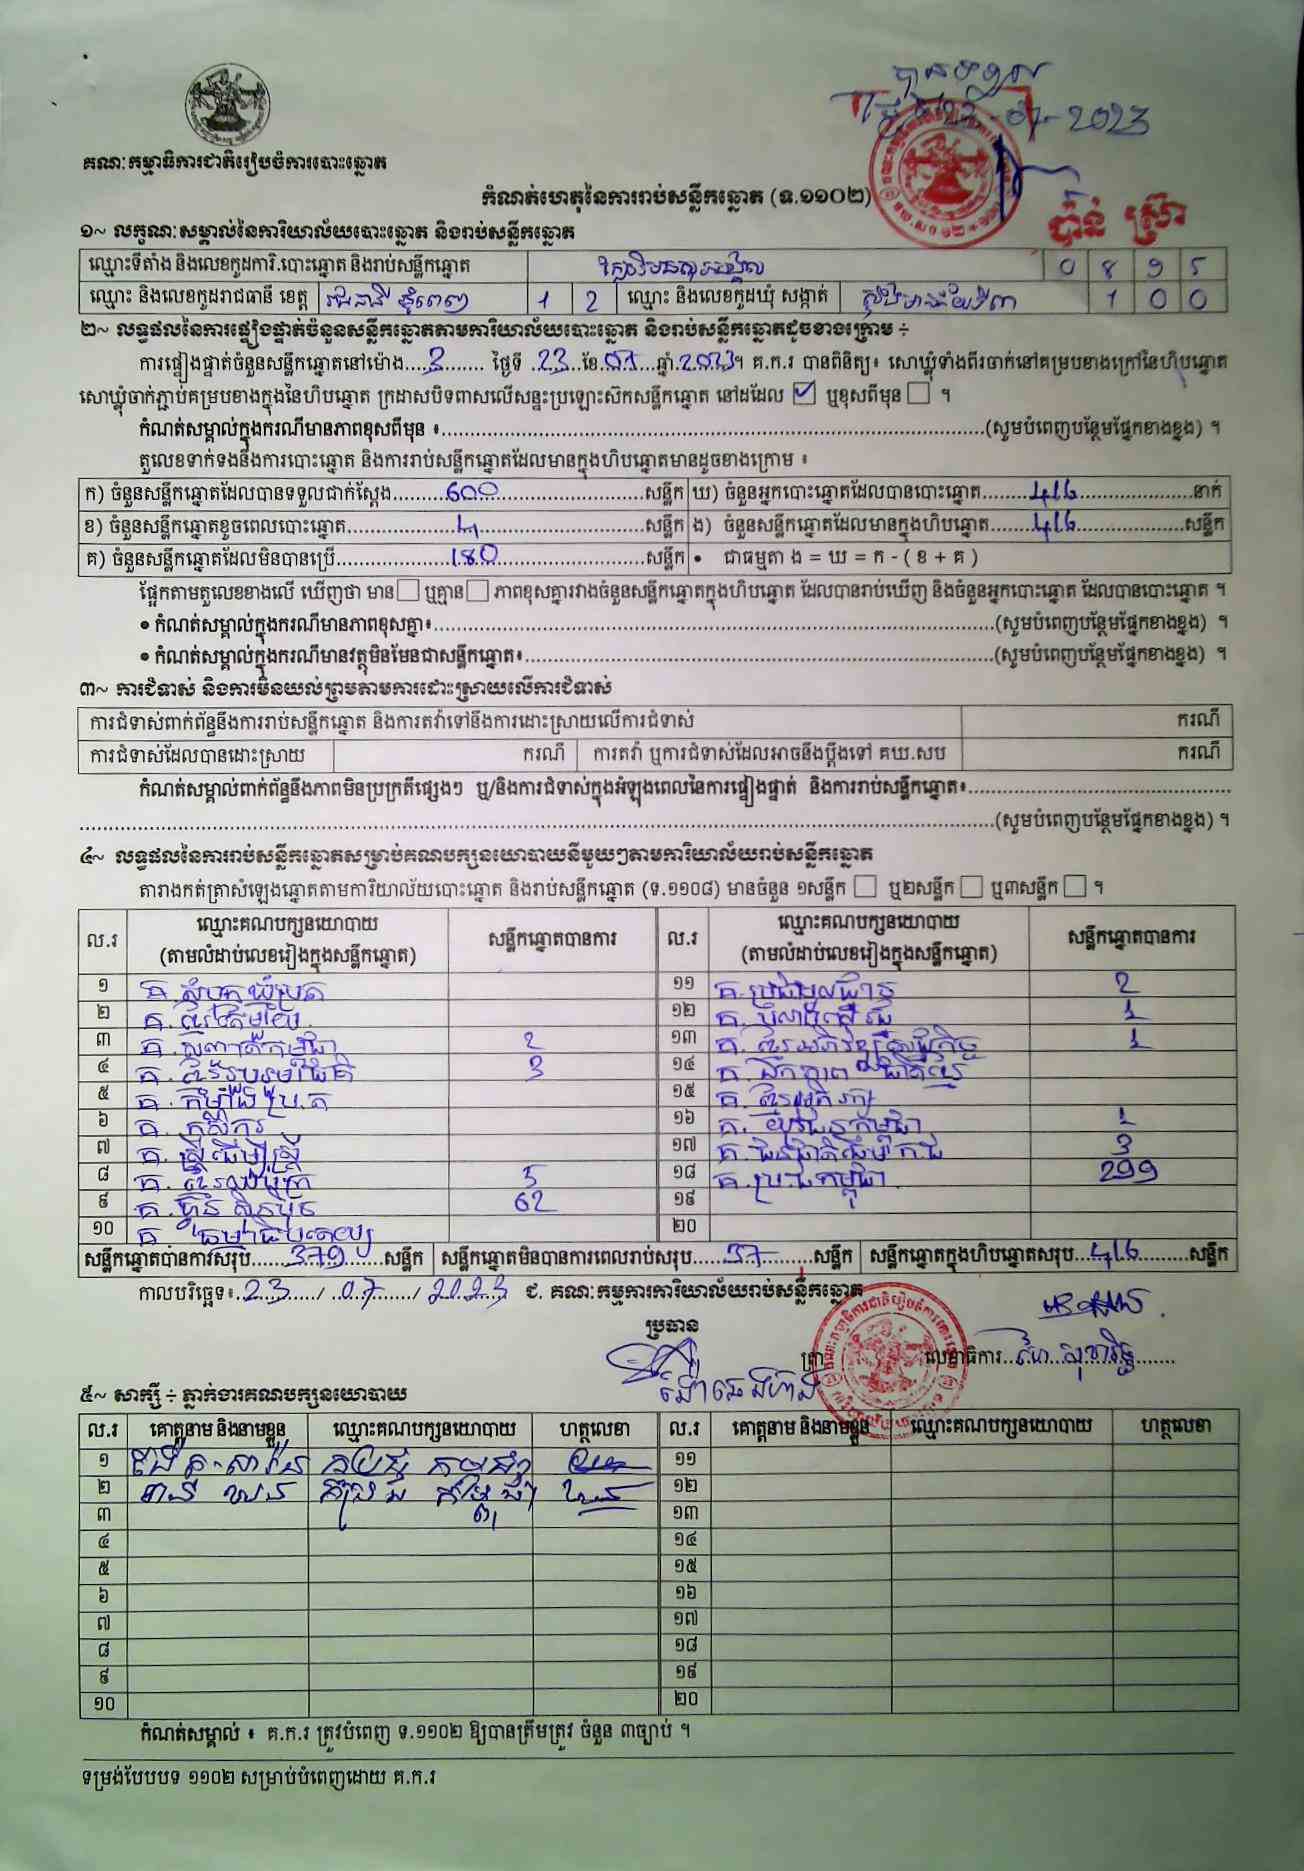 គណៈកម្មាធិការជាតិរៀបចំការបោះឆ្នោត
កំណត់ហេតុនៃការរាប់សន្លឹកឆ្នោត (ទ.១១០២)
2023
ប៉ាន់ ស្រ៊ា
១~ លក្ខណៈសម្គាល់នៃការិយាល័យបោះឆ្នោត និងរាប់សន្លឹកឆ្នោត
ឈ្មោះទីតាំង និងលេខកូដការិ.បោះឆ្នោត និងរាប់សន្លឹកឆ្នោត 0 8 9 5
ឈ្មោះ និងលេខកូដរាជធានី ខេត្ត រាជធានី ភ្នំពេញ 1 2 ឈ្មោះ និងលេខកូដឃុំ សង្កាត់ ស្ទឹងមានជ័យទី៣ 1 0 0
២~ លទ្ធផលនៃការផ្ទៀងផ្ទាត់ចំនួនសន្លឹកឆ្នោតតាមការិយាល័យបោះឆ្នោត និងរាប់សន្លឹកឆ្នោតដូចខាងក្រោម ÷
ការផ្ទៀងផ្ទាត់ចំនួនសន្លឹកឆ្នោតនៅម៉ោង....3........ ថ្ងៃទី .....23....ខែ.07....ឆ្នាំ.2023។ គ.ក.រ បានពិនិត្យ៖ សោឃ្លុំទាំងពីរចាក់នៅគម្របខាងក្រៅនៃហិបឆ្នោត
សោឃ្លុំចាក់ភ្ជាប់គម្របខាងក្នុងនៃហិបឆ្នោត ក្រដាសបិទពាសលើសន្ទះប្រឡោះស៊កសន្លឹកឆ្នោត នៅដដែល ☑ ឬខុសពីមុន ☐ ។
កំណត់សម្គាល់ក្នុងករណីមានភាពខុសពីមុន ៖..........(សូមបំពេញបន្ថែមផ្នែកខាងខ្នង) ។
តួលេខទាក់ទងនឹងការបោះឆ្នោត និងការរាប់សន្លឹកឆ្នោតដែលមានក្នុងហិបឆ្នោតមានដូចខាងក្រោម ៖
ក) ចំនួនសន្លឹកឆ្នោតដែលបានទទួលជាក់ស្តែង..........600..........សន្លឹក ឃ) ចំនួនអ្នកបោះឆ្នោតដែលបានបោះឆ្នោត........416..........នាក់
ខ) ចំនួនសន្លឹកឆ្នោតខូចពេលបោះឆ្នោត..........4..........សន្លឹក ង) ចំនួនសន្លឹកឆ្នោតដែលមានក្នុងហិបឆ្នោត.......416..........សន្លឹក
គ) ចំនួនសន្លឹកឆ្នោតដែលមិនបានប្រើ..........180..........សន្លឹក • ជាធម្មតា ង = ឃ = ក - ( ខ + គ )
ផ្អែកតាមតួលេខខាងលើ ឃើញថា មាន ☐ ឬគ្មាន ☐ ភាពខុសគ្នារវាងចំនួនសន្លឹកឆ្នោតក្នុងហិបឆ្នោត ដែលបានរាប់ឃើញ និងចំនួនអ្នកបោះឆ្នោត ដែលបានបោះឆ្នោត ។
• កំណត់សម្គាល់ក្នុងករណីមានភាពខុសគ្នា៖..........(សូមបំពេញបន្ថែមផ្នែកខាងខ្នង) ។
• កំណត់សម្គាល់ក្នុងករណីមានវត្ថុមិនមែនជាសន្លឹកឆ្នោត៖..........(សូមបំពេញបន្ថែមផ្នែកខាងខ្នង) ។
៣~ ការជំទាស់ និងការមិនយល់ព្រមតាមការដោះស្រាយលើការជំទាស់
ការជំទាស់ពាក់ព័ន្ធនឹងការរាប់សន្លឹកឆ្នោត និងការតវ៉ាទៅនឹងការដោះស្រាយលើការជំទាស់ ករណី
ការជំទាស់ដែលបានដោះស្រាយ ករណី ការតវ៉ា ឬការជំទាស់ដែលអាចនឹងប្តឹងទៅ គឃ.សប ករណី
កំណត់សម្គាល់ពាក់ព័ន្ធនឹងភាពមិនប្រក្រតីផ្សេងៗ ឬ/និងការជំទាស់ក្នុងអំឡុងពេលនៃការផ្ទៀងផ្ទាត់ និងការរាប់សន្លឹកឆ្នោត៖..........
..........(សូមបំពេញបន្ថែមផ្នែកខាងខ្នង) ។
៤~ លទ្ធផលនៃការរាប់សន្លឹកឆ្នោតសម្រាប់គណបក្សនយោបាយនីមួយៗតាមការិយាល័យរាប់សន្លឹកឆ្នោត
តារាងកត់ត្រាសំឡេងឆ្នោតតាមការិយាល័យបោះឆ្នោត និងរាប់សន្លឹកឆ្នោត (ទ.១១០៨) មានចំនួន ១សន្លឹក ☐ ឬ២សន្លឹក ☐ ឬ៣សន្លឹក ☐ ។
ល.រ ឈ្មោះគណបក្សនយោបាយ (តាមលំដាប់លេខរៀងក្នុងសន្លឹកឆ្នោត) សន្លឹកឆ្នោតបានការ ល.រ ឈ្មោះគណបក្សនយោបាយ (តាមលំដាប់លេខរៀងក្នុងសន្លឹកឆ្នោត) សន្លឹកឆ្នោតបានការ
១ គ. សំបុកឃ្មុំ ១១ គ. 2
២ គ. ១២ គ. 1
៣ គ. កម្ពុជា 2 ១៣ គ. 1
៤ គ. 3 ១៤ គ. ឯកភាពជាតិខ្មែរ
៥ គ. កម្លាំងប្រ.ត ១៥ គ.
៦ គ. កសិករ ១៦ គ. យុវជនកម្ពុជា 1
៧ គ. ស្ត្រីដើម្បីស្ត្រី ១៧ គ. 3
៨ គ. 5 ១៨ គ. ប្រជាជនកម្ពុជា 299
៩ គ. ហ្វ៊ុនស៊ិនប៉ិច 62 ១៩
១០ គ. ធម្មាធិបតេយ្យ ២០
សន្លឹកឆ្នោតបានការសរុប......379......សន្លឹក សន្លឹកឆ្នោតមិនបានការពេលរាប់សរុប......37........សន្លឹក សន្លឹកឆ្នោតក្នុងហិបឆ្នោតសរុប...416........សន្លឹក
កាលបរិច្ឆេទ៖..23......../..07......../..2023.... ជ. គណៈកម្មការការិយាល័យរាប់សន្លឹកឆ្នោត
ប្រធាន
ត្រា លេខាធិការ..........
៥~ សាក្សី ÷ ភ្នាក់ងារគណបក្សនយោបាយ
ល.រ គោត្តនាម និងនាមខ្លួន ឈ្មោះគណបក្សនយោបាយ ហត្ថលេខា ល.រ គោត្តនាម និងនាមខ្លួន ឈ្មោះគណបក្សនយោបាយ ហត្ថលេខា
១ ១១
២ ១២
៣ ១៣
៤ ១៤
៥ ១៥
៦ ១៦
៧ ១៧
៨ ១៨
៩ ១៩
១០ ២០
កំណត់សម្គាល់ ៖ គ.ក.រ ត្រូវបំពេញ ទ.១១០២ ឱ្យបានត្រឹមត្រូវ ចំនួន ៣ច្បាប់ ។
ទម្រង់បែបបទ ១១០២ សម្រាប់បំពេញដោយ គ.ក.រ